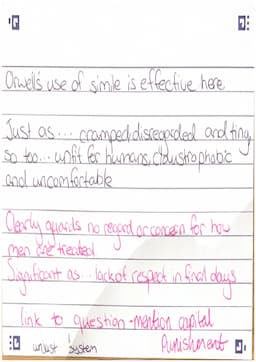 Orwell's use of simile is effective here
Just as... cramped, disregarded and tiny
so too... unfit for humans, claustrophobic
and uncomfortable
Clearly guards no regard or concern for how
men are treated
Significant as... lack of respect in final days
link to question - mention capital
unjust system punishment